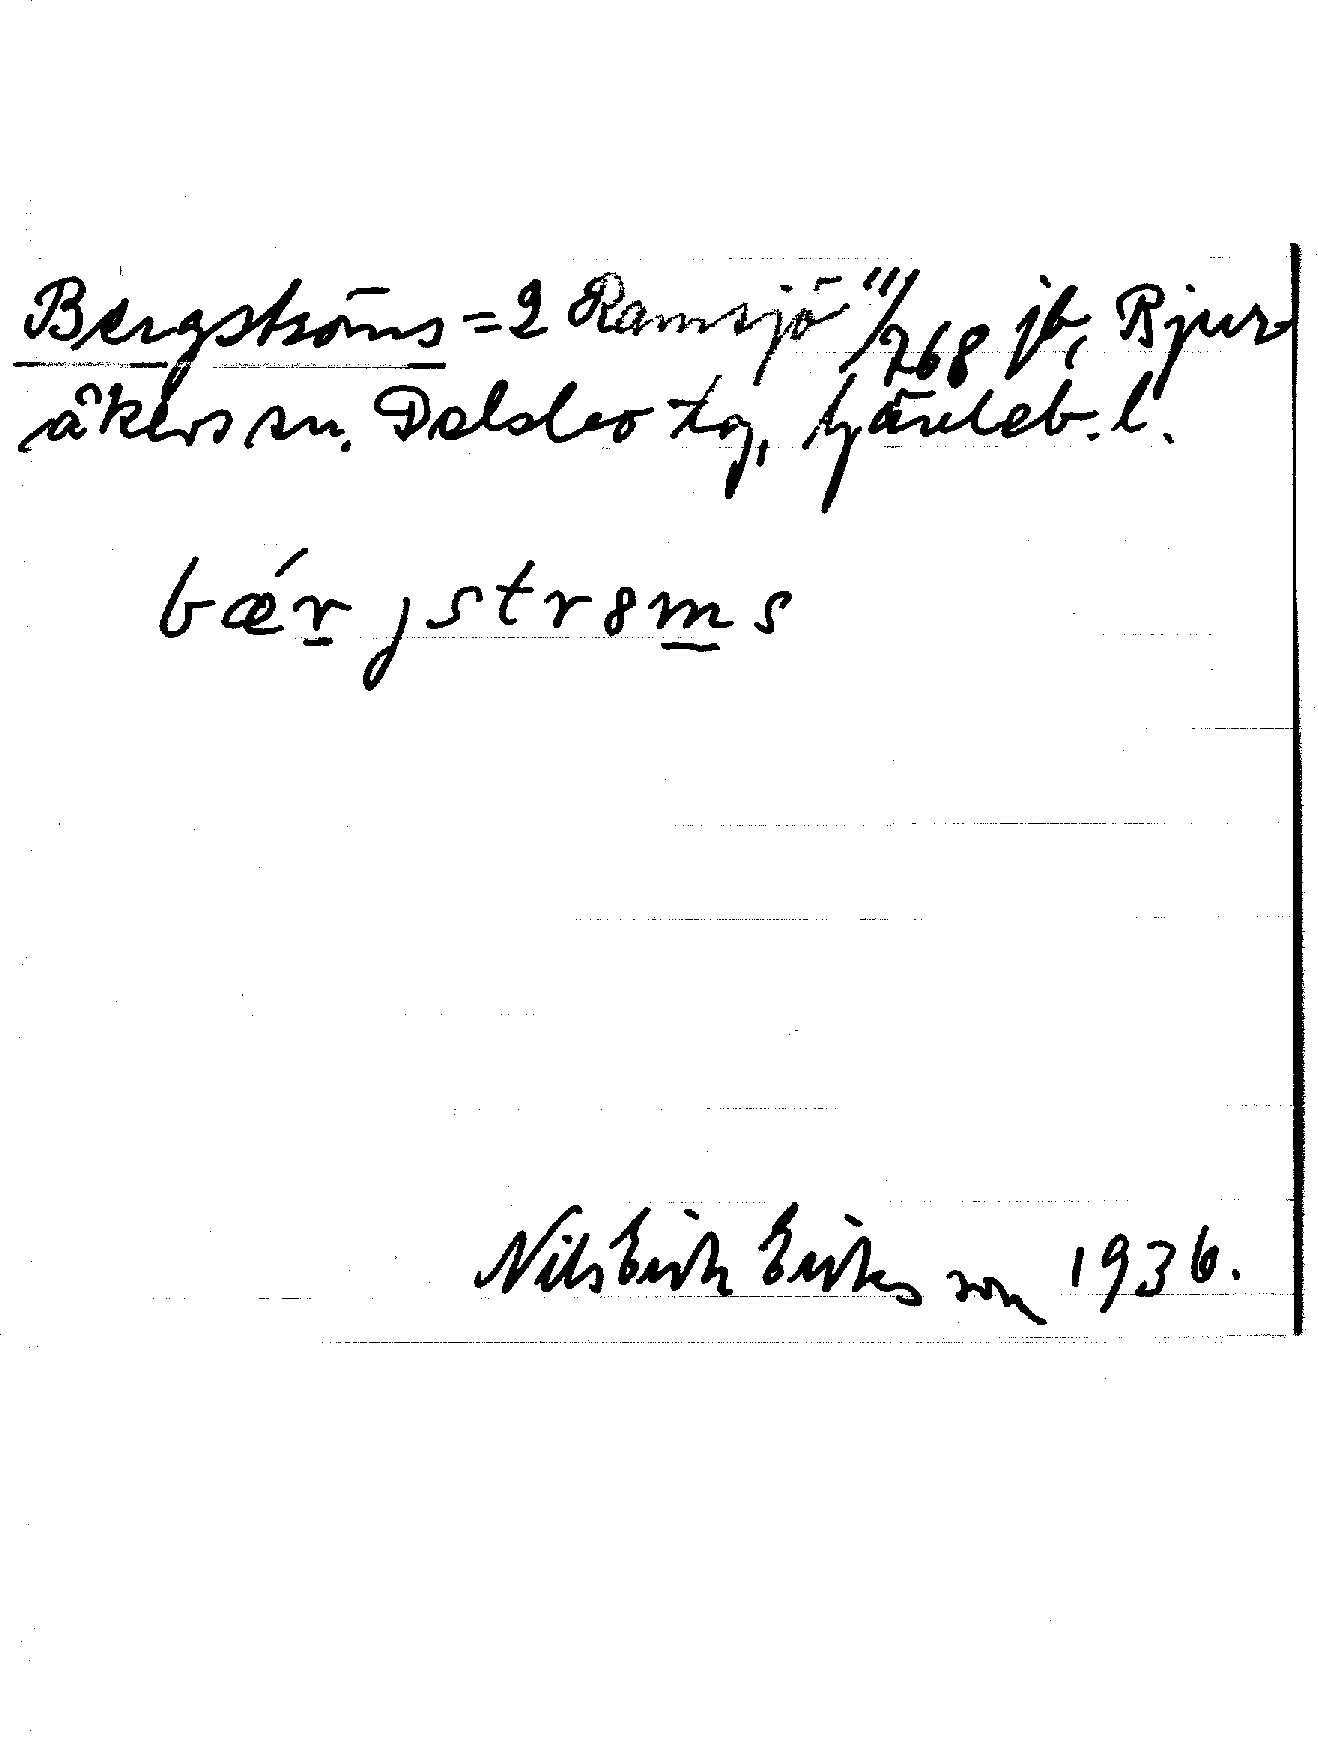 Bergströms = 2 Ramsjö 11/768 jb, Bjur-
åkers sn. Delsbo tg, Gävleb. l.
bǽr̲jstr8m̲s
Nils Erik Eriksson 1936.